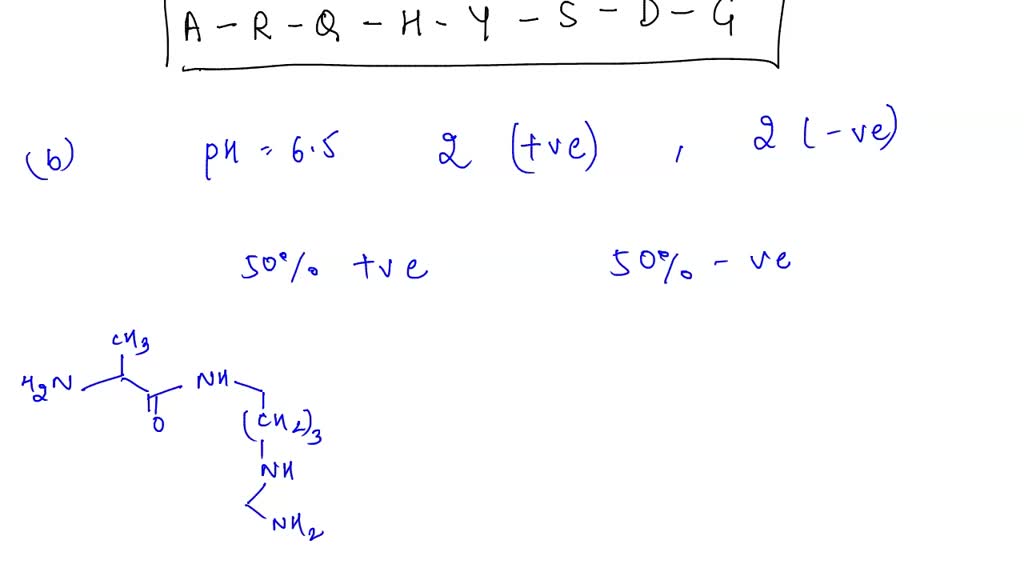 A - R - Q - H - Y - S - D - G
(b) pH = 6.5 2 (+ve) , 2 (-ve)
50% +ve 50% - ve
CH3
H2N NH
O (CH2)3
NH
NH2